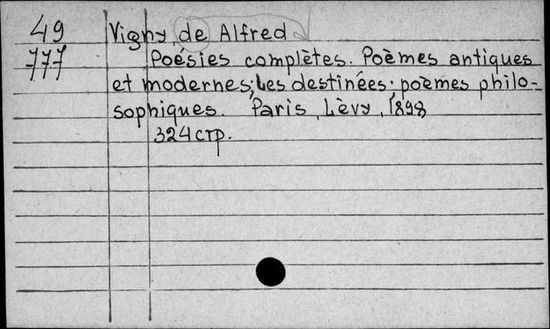 49 Vigny de Alfred
777 Poésies complètes. Poèmes antiques
et modernes; Les destinées; poèmes philo-
sophiques. Paris, Lèvy, 1898
324 стр.